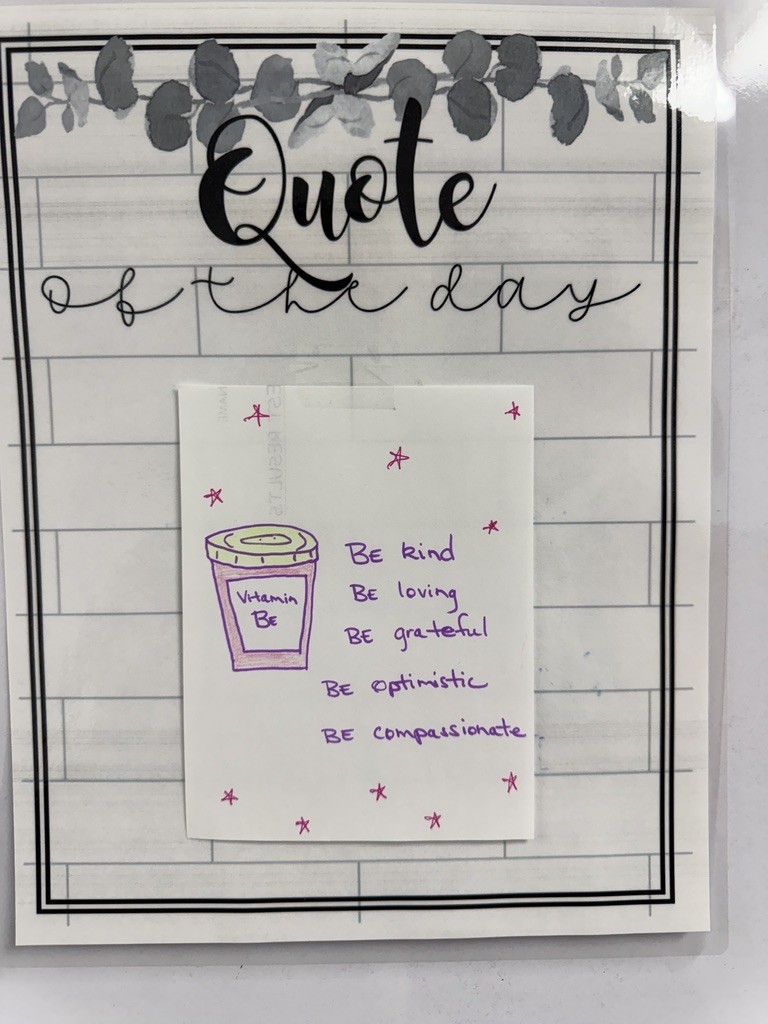 Quote
of the day
NAME
EST RESULTS
Vitamin
BE
BE kind
BE loving
BE grateful
BE optimistic
BE compassionate